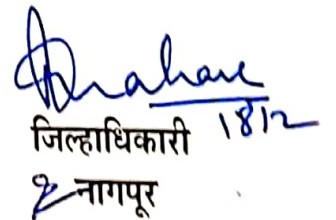 18/2
जिल्हाधिकारी
नागपूर